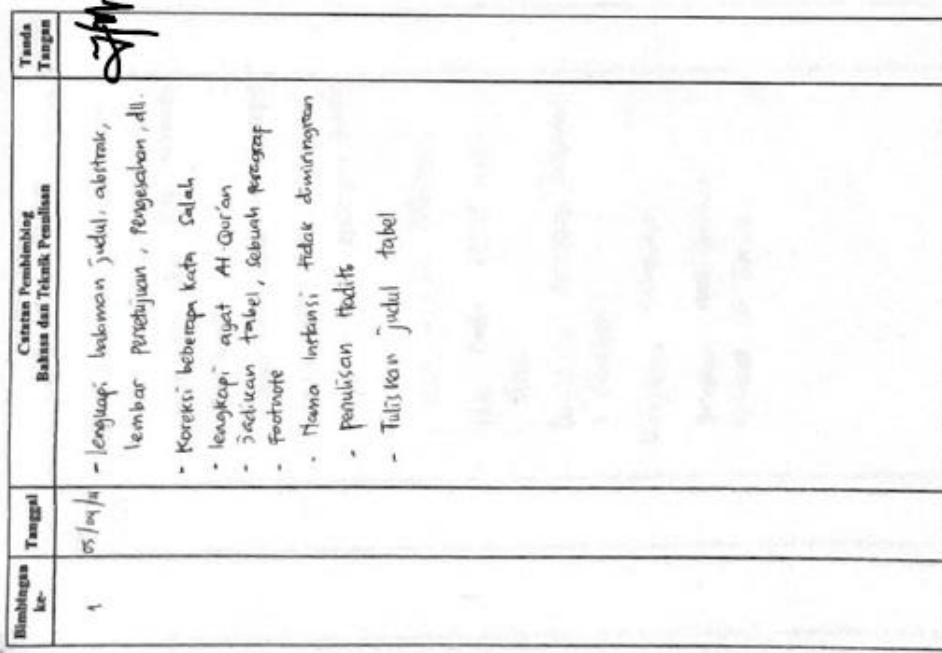 Bimbingan
ke-
Tanggal
Catatan Pembimbing
Bahasa dan Teknik Penulisan
Tanda
Tangan
1
05/04/
- lengkapi halaman judul, abstrak,
lembar persetujuan, pengesahan, dll.
- Koreksi beberapa kata salah
- lengkapi ayat Al-Qur'an
- Jadikan tabel, sebuah paragraf
- Footnote
- Nama Instansi tidak dimiringkan
- penulisan Hadits
- Tuliskan judul tabel